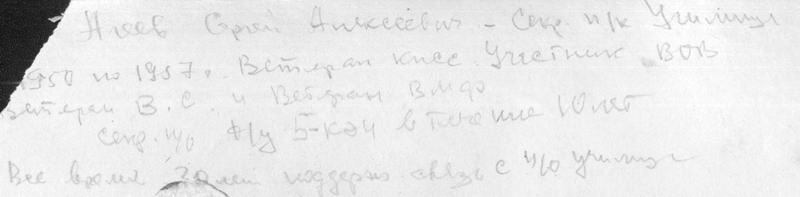 Сергей Алексеевич - Секр. п/к Училища
1950 по 1957г. Ветеран КПСС. Участник ВОВ
Ветеран В.С. и Ветеран ВМФ
Секр. п/о в течение 10 лет
Все время 20 лет поддерж связь с п/о училища